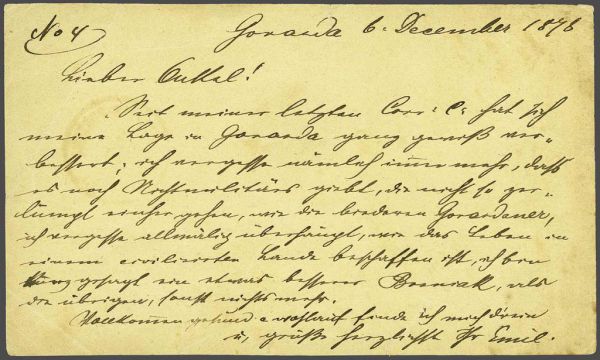 No 4 Gorazda 6. December 1876
Lieber Onkel!
Seit meiner letzten Corr: C: hat sich
meine Lage in Gorazda ganz gewiß ver-
bessert; ich vergesse nämlich immer mehr, daß
es noch Nichtmilitärs giebt, die nicht so zer-
lumpt einher gehen, wie die biederen Gorazdaner,
ich vergesse allmälig überhaupt, wie das Leben in
einem civilisirten Lande beschaffen ist, ich bin
kurz gesagt ein etwas besserer Bosniak, als
die übrigen, sonst nichts mehr.
Vollkommen gesund & wohlauf finde ich mich drein
u, grüße herzlichst Ihr Emil.